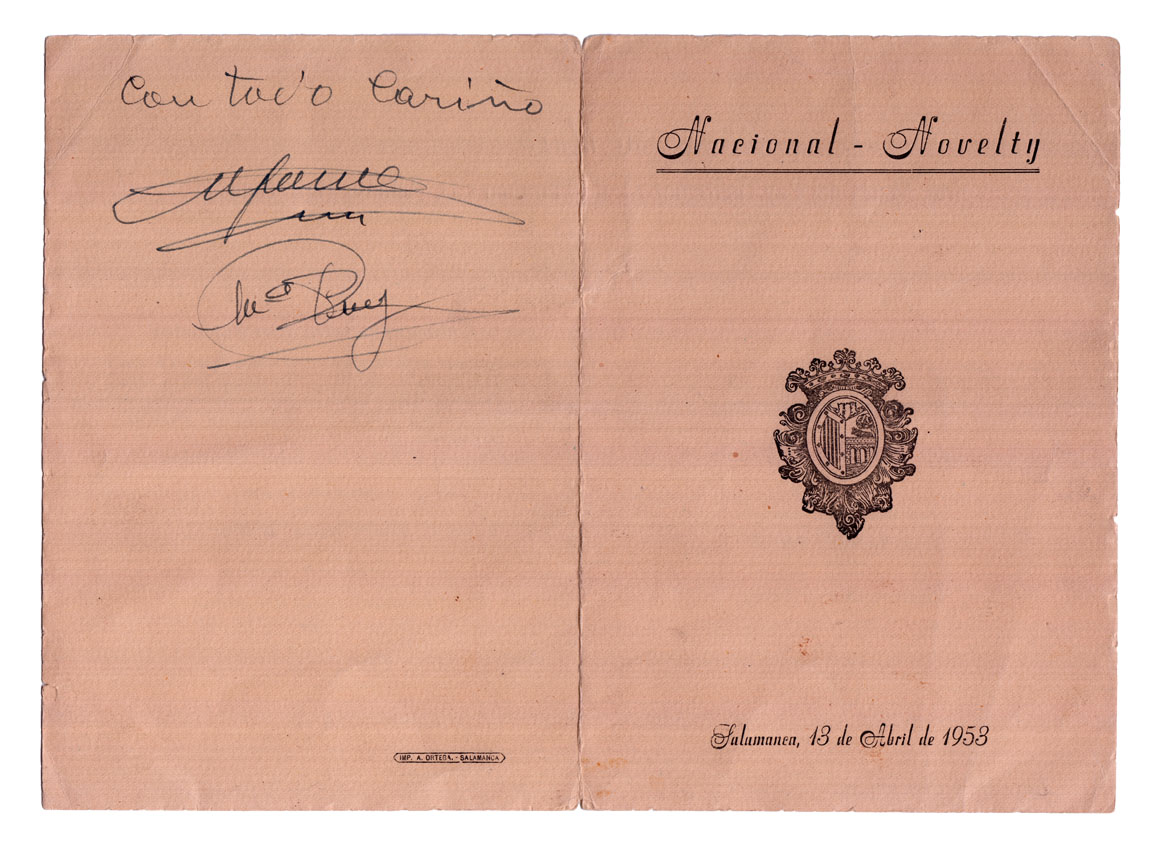 Con todo Cariño
Mª Puey
IMP. A. ORTEGA. - SALAMANCA
Nacional - Novelty
Salamanca, 13 de Abril de 1953